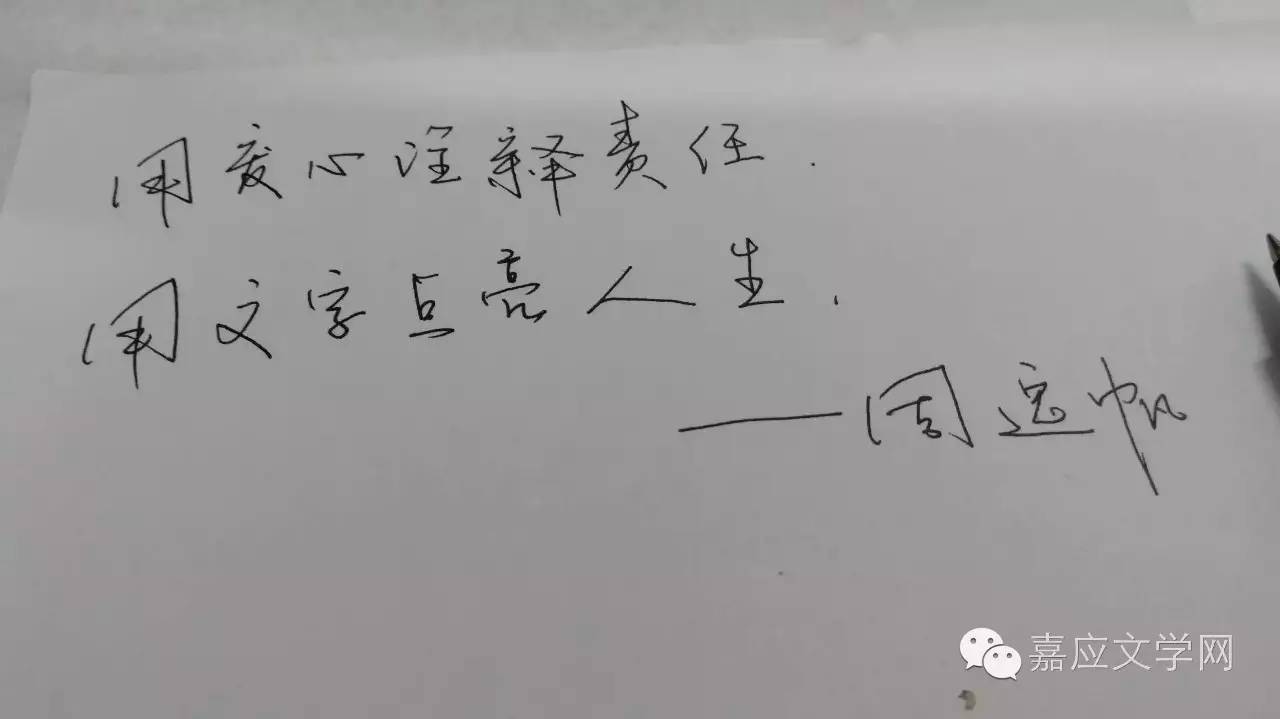 用爱心诠释责任.
用文字点亮人生.
——周远帆
嘉应文学网